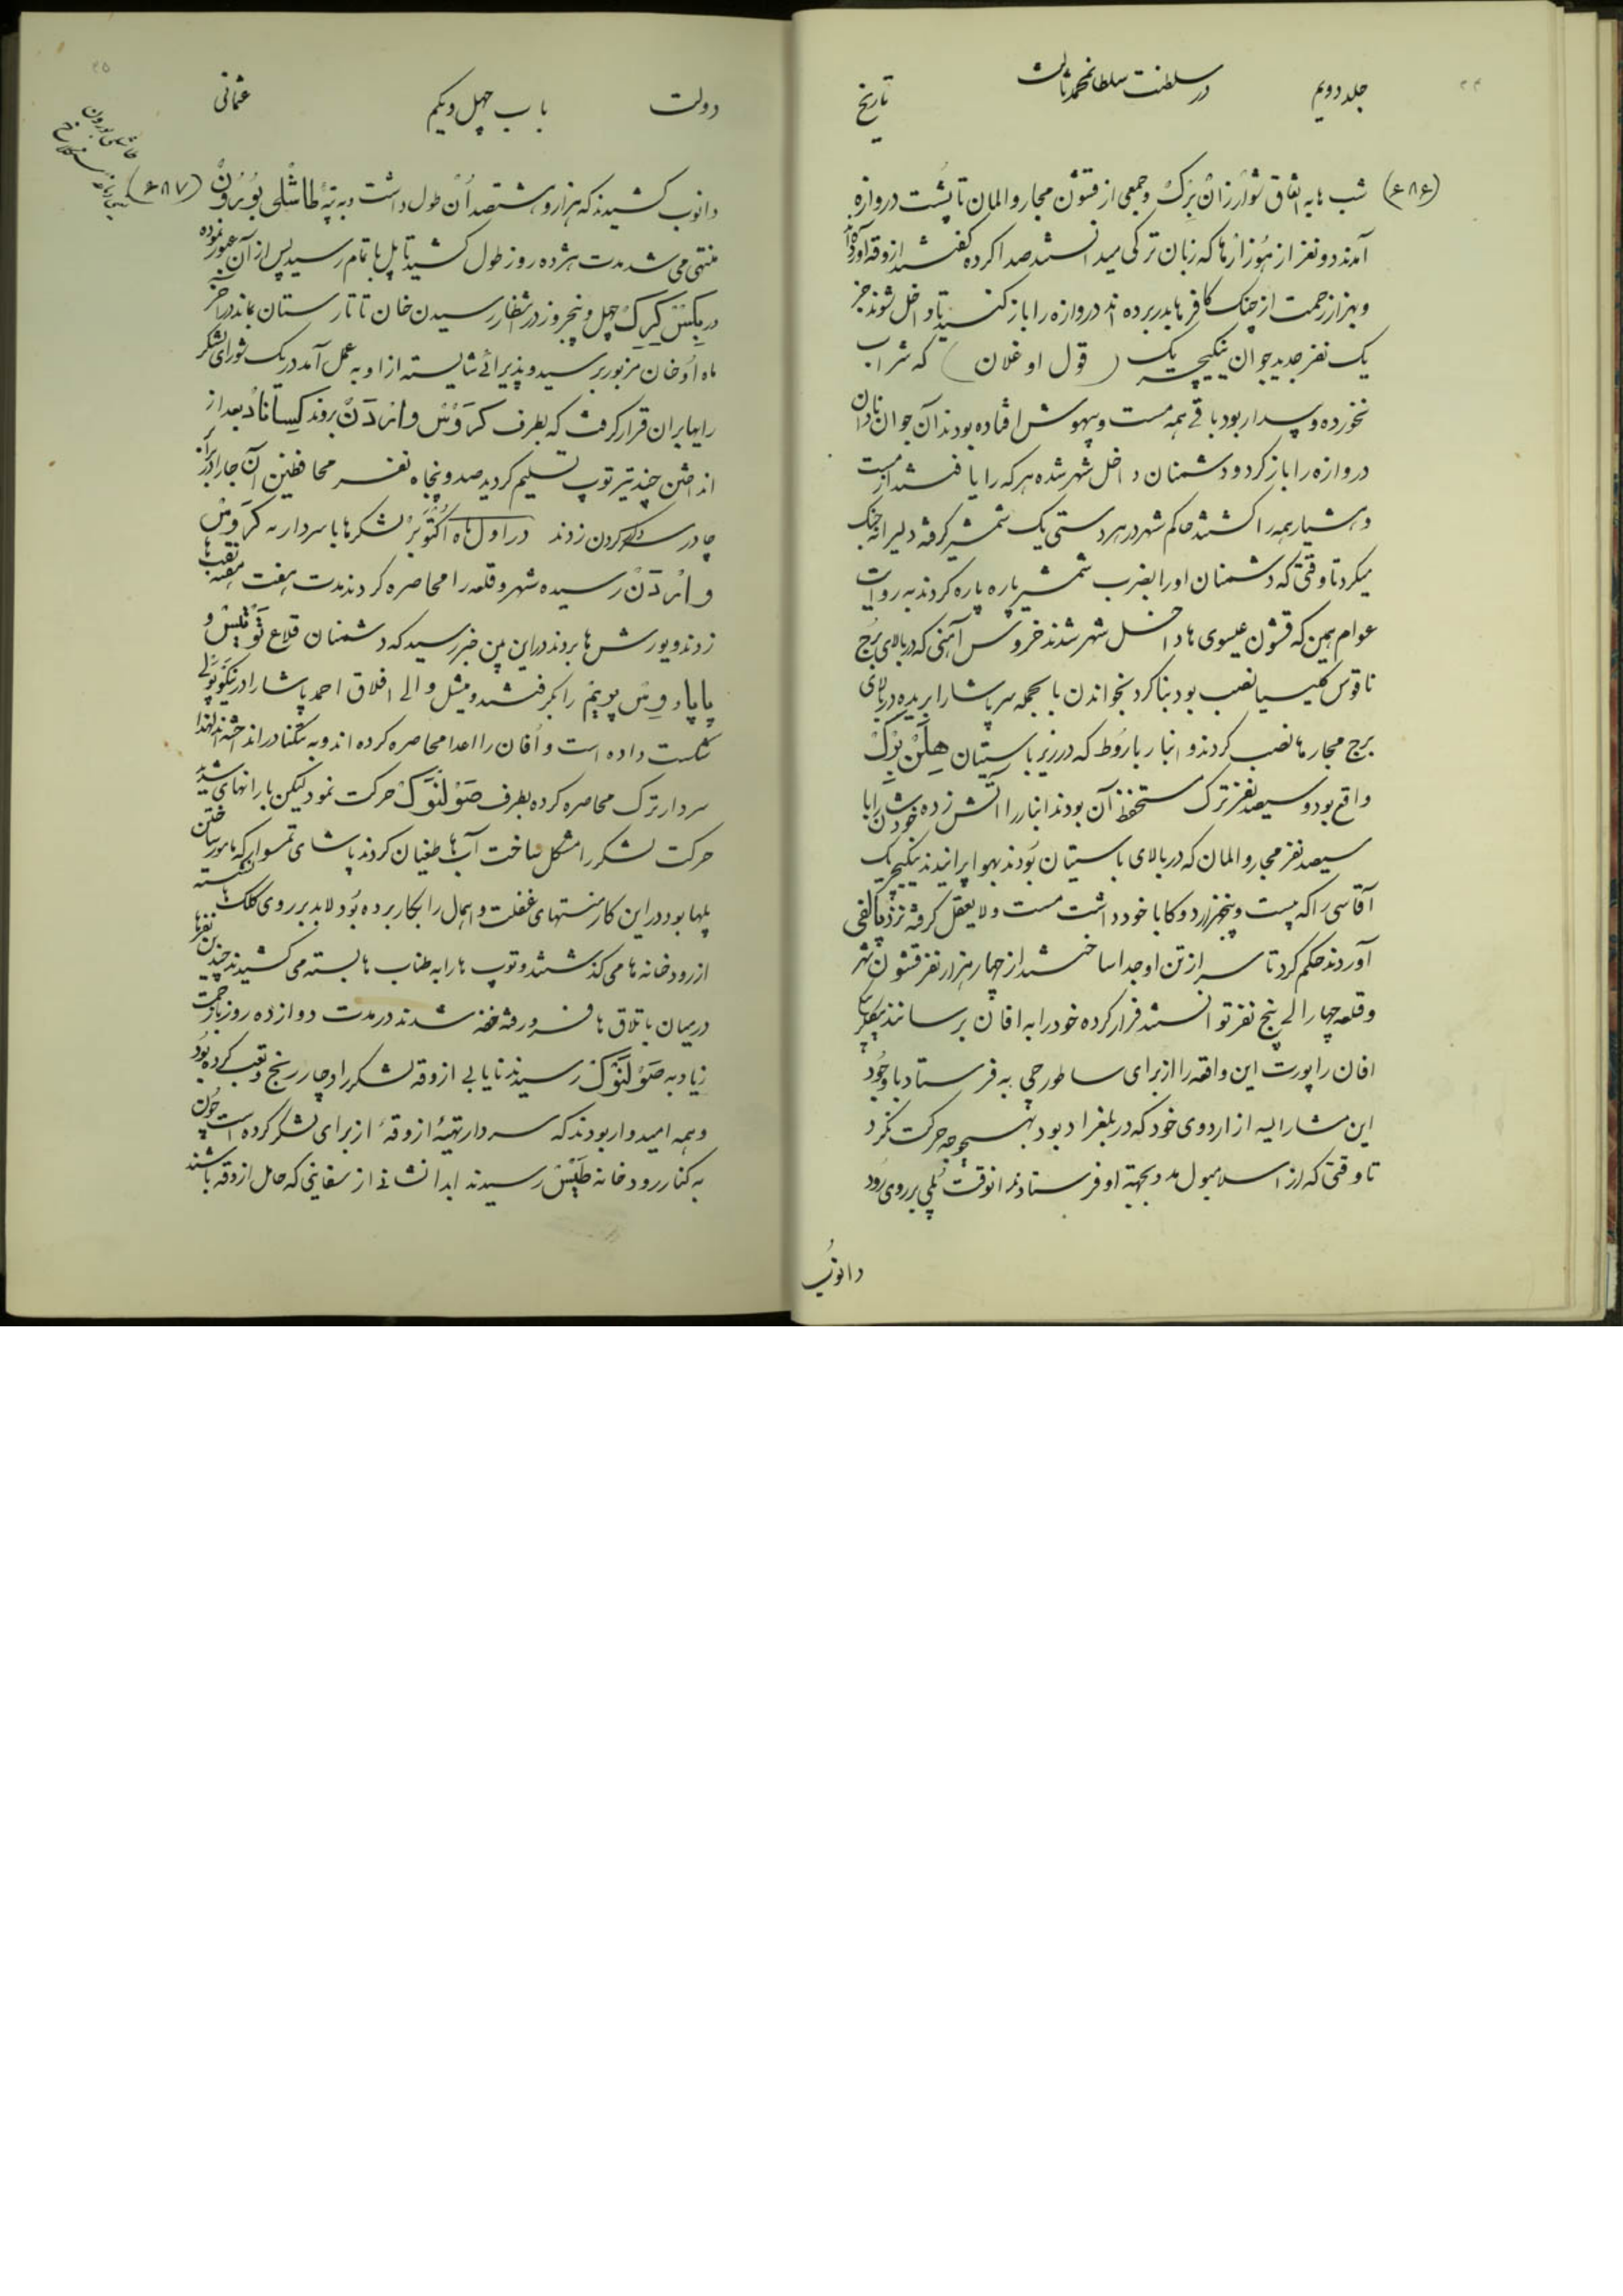 جلد دویم
در سلطنت سلطان محمد ثالث
تاریخ
(۶۸۶) شب ها به اتفاق شوارزان برک وجمعی از قشون مجار و المان تا پشت دروازه
آمدند دو نفر از هوزارها که زبان ترکی میدانستند صدا کرده گفتند ازوقه آورده‌اند
وبهزار زحمت از چنک کافرها بدر برده اند دروازه را باز کنید تا داخل شوند جز
یک نفر جدید جوان ینکیچریک (قول اوغلان) که شراب
نخورده وبیدار بود باقی همه مست وبیهوش افتاده بودند آن جوان نادان
دروازه را باز کرد ودشمنان داخل شهر شده هر که را یافتند از مست
وهشیار همه را کشتند حاکم شهر در هر دستی یک شمشیر گرفته دلیرانه جنک
میکرد تا وقتی که دشمنان او را بضرب شمشیر پاره پاره کردند به روایت
عوام همین که قشون عیسوی ها داخل شهر شدند خروس آهنی که در بالای برج
ناقوس کلیسیا نصب بود بنا کرد بخواندن بالجمله سر پاشا را بریده در بالای
برج مجارها نصب کردند و انبار باروط که در زیر باستیان هلن برک
واقع بود وسیصد نفر ترک مستحفظ آن بودند انبار را آتش زده خودشان را با
سیصد نفر مجار و المان که در بالای باستیان بودند بهوا پرانیدند ینکیچریک
آقاسی را که بیست وپنجهزار دوکا با خود داشت مست ولایعقل گرفته نزد پالفی
آوردند حکم کرد تا سر از تن او جدا ساختند از چهار هزار نفر قشون شهر
وقلعه چهار الی پنج نفر توانستند فرار کرده خود را به افان برسانند
افان راپورت این واقعه را از برای ساطورجی به فرستاد با وجود
این مشارالیه از اردوی خود که در بلغراد بود بهیچوجه حرکت نکرد
تا وقتی که از اسلامبول مدد بجهة او فرستادند انوقت پلی بر روی رود
دانوب
دولت
باب چهل ویکم
عثمانی
دانوب کشیدند که هزار وهشتصد اُن طول داشت وبه تپۀ طاشلی بورون (۶۸۷)
طاشلی بورون
منتهی می شد مدت هژده روز طول کشید تا پل باتمام رسید پس از آن عبور نموده
در بکس کرک چهل وپنجروز در انتظار رسیدن خان تاتارستان بماند در آخر
ماه اُو خان مزبور برسید وپذیرائی شایسته از او به عمل آمد در یک شورای لشکر
رایها بر ان قرار گرفت که بطرف کروس واردن بروند کساناد بعد از
انداختن چند تیر توپ تسلیم کردید صد وپنجاه نفر محافظین آن جا را در برابر
چادر سردار کردن زدند در اول ماه اکتوبر لشکرها با سردار به کروس
واردن رسیده شهر وقلعه را محاصره کردند مدت هفت هفته نقب ها
زدند ویورش ها بردند در این بین خبر رسید که دشمنان قلاع توتیس و
پاپا و وس پویم را بکرفتند ومیشل والی افلاق احمد پاشا را در نیکوپولی
شکست داده است وافان را اعدا محاصره کرده اند وبه تنکنا در انداخته اند لهذا
سردار ترک محاصره کرده بطرف صولنوک حرکت نمود لیکن بارانهای شدید
حرکت لشکر را مشکل ساخت آب ها طغیان کردند پاشای تمسوار که مامور ساختن
پلها بود در این کار منتهای غفلت واهمال را بکار برده بود لابد بر روی کلک ها نشسته
از رودخانه ها می گذشتند وتوپ ها را به طناب ها بسته می کشیدند چندین نفرها
در میان باتلاق ها فرو رفته خفه شدند در مدت دوازده روز با زحمت
زیاد به صولنوک رسیدند نایابی ازوقه لشکر را دچار رنج وتعب کرده بود
وهمه امیدوار بودند که سردار تهیۀ ازوقۀ از برای لشکر کرده است چون
به کنار رودخانه طیس رسیدند ابدا نشانی از سفاینی که حامل ازوقه باشند